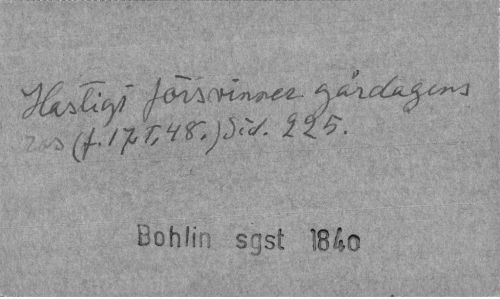 Hastigt försvinner gårdagens
ros (f. 17 T, 48.) Sid. 225.
Bohlin sgst 1840